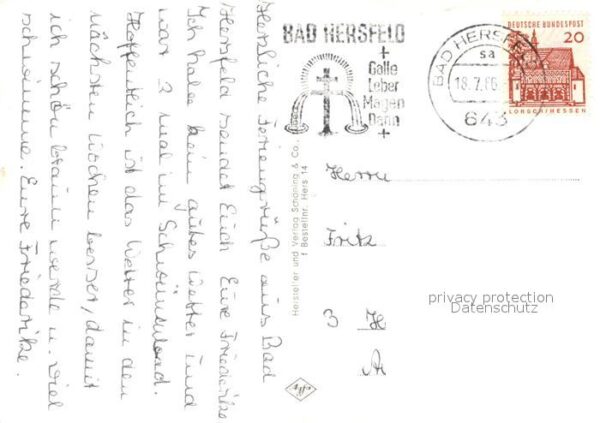 Herzliche Feriengrüße aus Bad
Hersfeld sendet Euch Eure Friederike
Ich habe kein gutes Wetter und
war 2 mal im Schwimmbad.
Hoffentlich ist das Wetter in den
nächsten Wochen besser, damit
ich schön braun werde u. viel
schwimme. Eure Friederike.
Hersteller und Verlag Schöning & Co.
Bestellnr. Hers 14
BAD HERSFELD
Galle
Leber
Magen
Darm
BAD HERSFELD
sa
18.7.66
643
DEUTSCHE BUNDESPOST
20
LORSCH/HESSEN
Herrn
Fritz
privacy protection
Datenschutz